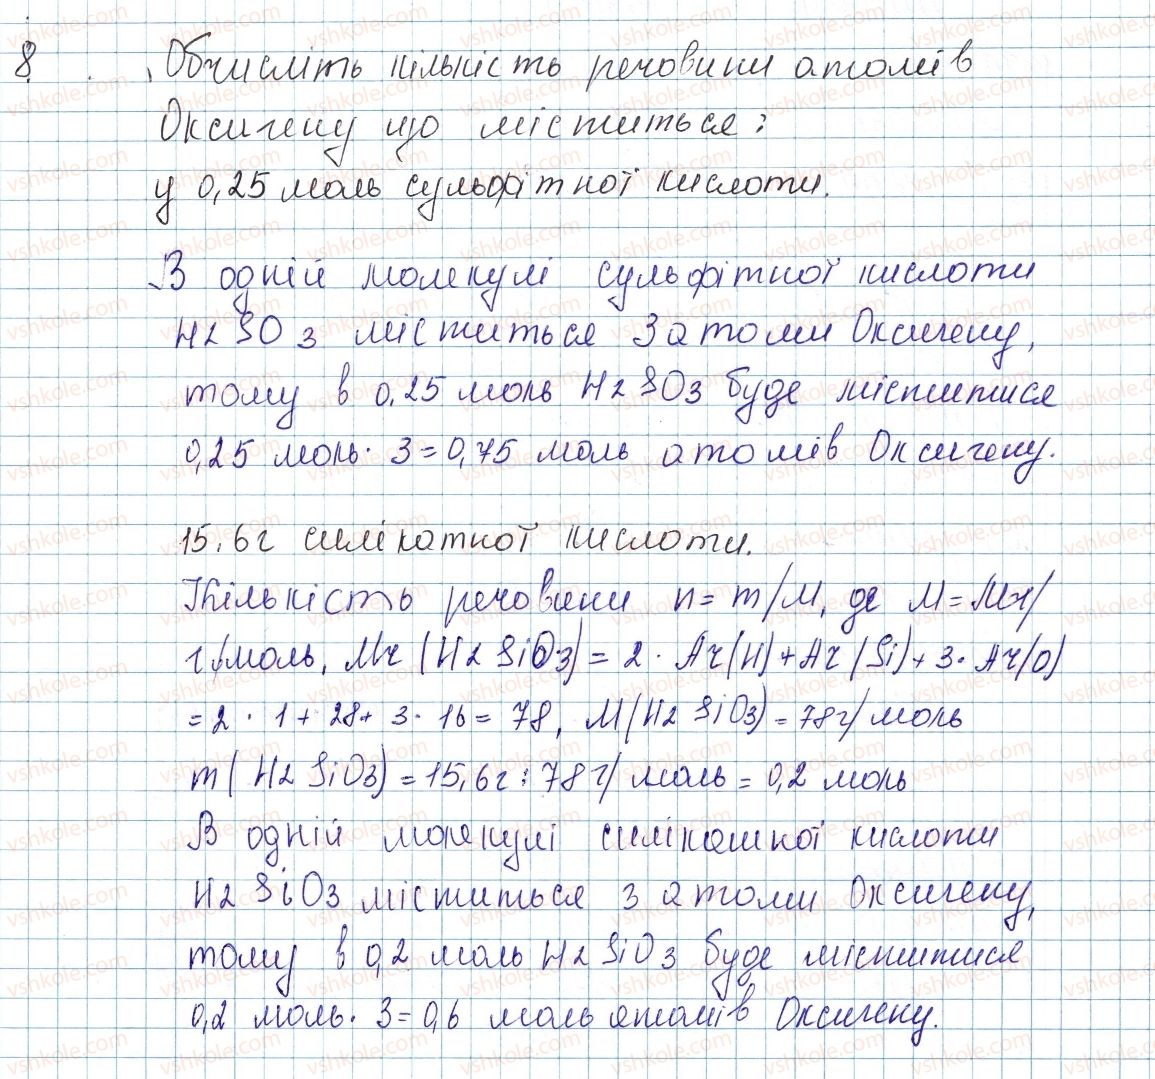 8
Обчисліть кількість речовини атомів
Оксигену що міститься:
у 0,25 моль сульфітної кислоти.
В одній молекулі сульфітної кислоти
H2SO3 міститься 3 атоми Оксигену,
тому в 0,25 моль H2SO3 буде міститися
0,25 моль · 3 = 0,75 моль атомів Оксигену.
15,6 г силікатної кислоти.
Кількість речовини n = m/M, де M = Mr/
г/моль, Mr (H2SiO3) = 2 · Ar(H) + Ar(Si) + 3 · Ar(O)
= 2 · 1 + 28 + 3 · 16 = 78, M(H2SiO3) = 78 г/моль
m(H2SiO3) = 15,6 г : 78 г/моль = 0,2 моль
В одній молекулі силікатної кислоти
H2SiO3 міститься 3 атоми Оксигену,
тому в 0,2 моль H2SiO3 буде міститися
0,2 моль · 3 = 0,6 моль атомів Оксигену.